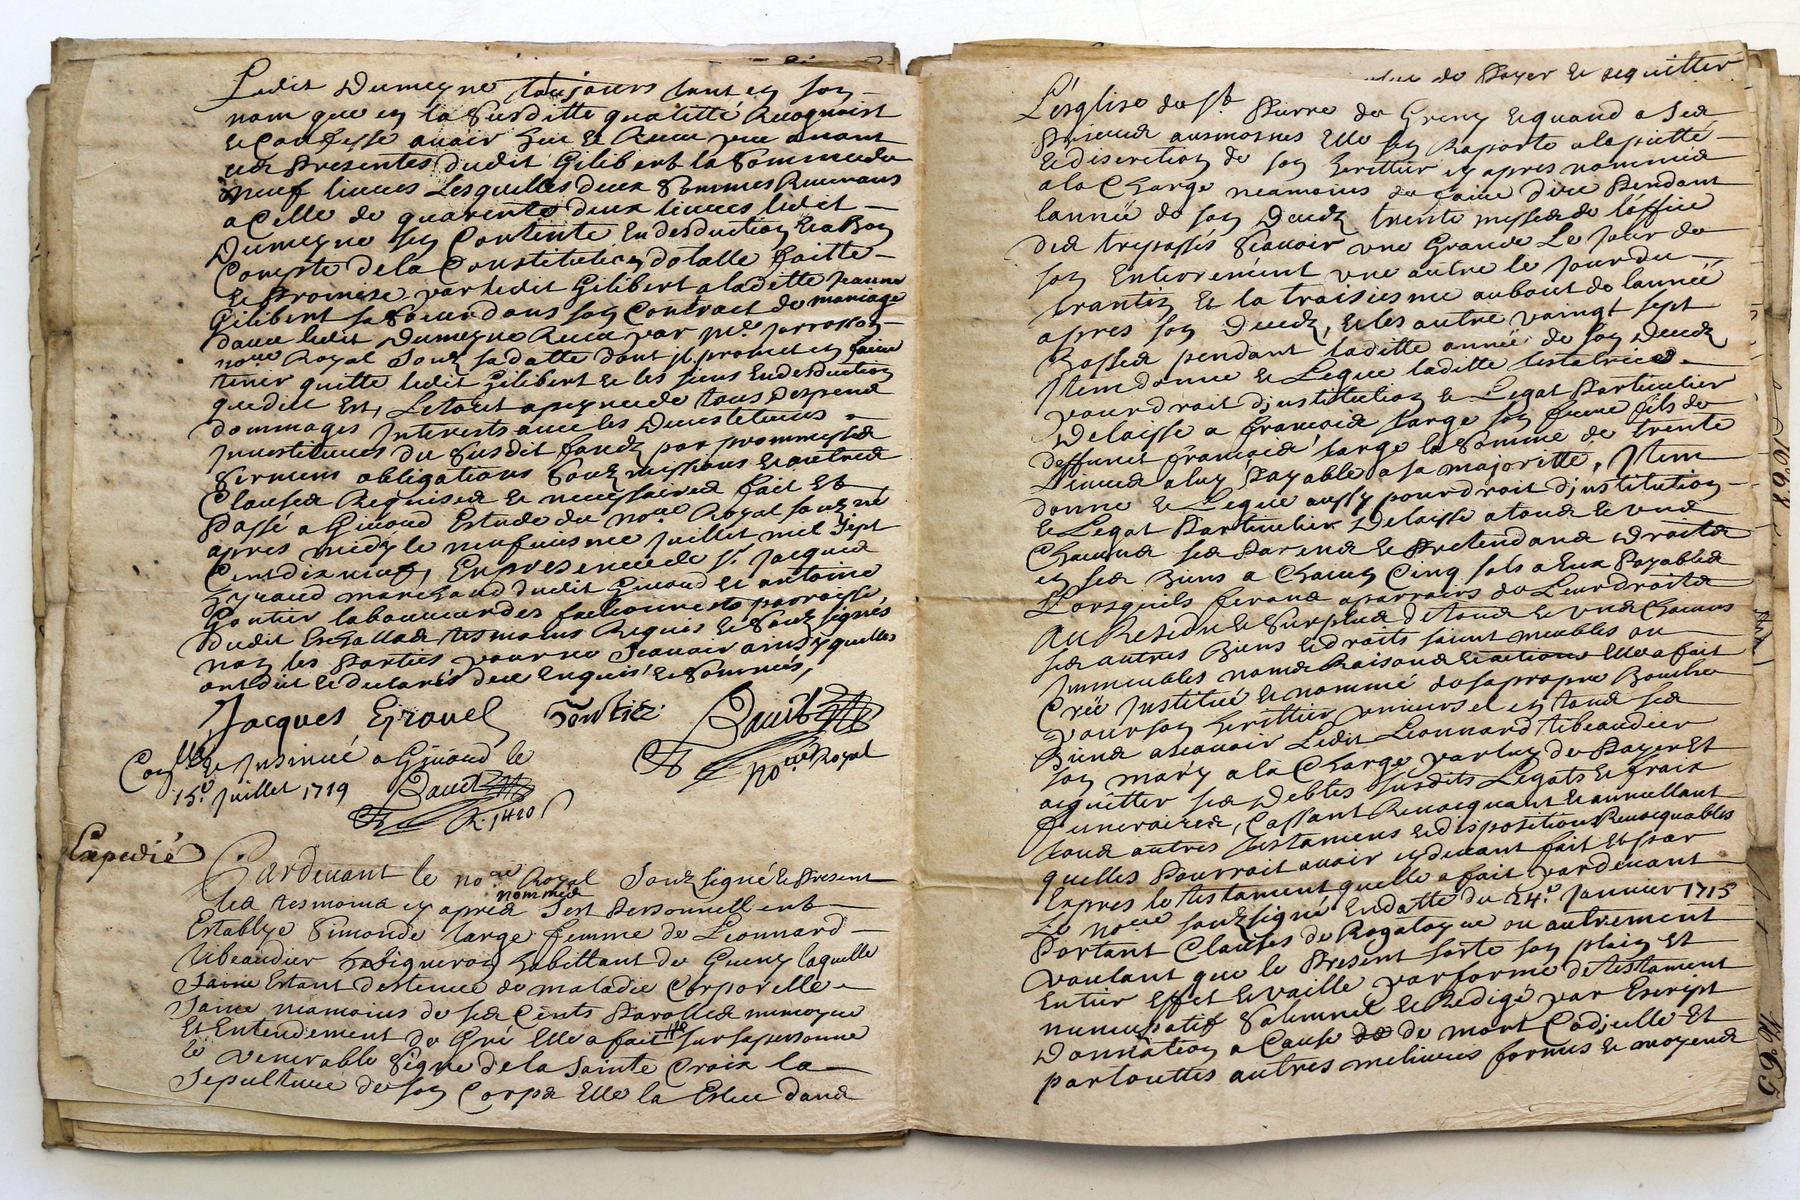 Ledit Dumeyne toujours tant en son
nom que en la susditte qualitté Recognoist
et Confesse avoir heu et Receu peu avant
ces presentes dudit Gilibert la somme de
neuf livres Lesquelles deux sommes Revenans
a Celle de quarente deux livres ledit
Dumeyne sen Contente En desduction Et a Bon
Compte de la Constitution dotalle faitte
et Promise par ledit Gilibert a laditte Jeanne
Gilibert sa sœur dans son Contract de mariage
avec ledit Dumeyne Receu par me Jarrosson
nore Royal Soub sa datte dont jl promet en faire
tenir quitte ledit Gilibert et les siens En desduction
que dit Est, Le tout a peyne de tous despend
dommages Interests avec les Devestitures
Investitures du susdit fondz par prommesses
sermens obligations soubzmissions et autres
Clauses Requises et necessaires fait Et
Passé a Givord Estude du nore Royal soubzné
apres midy le neufviesme Juillet mil sept
Cens dix neuf, En presence de sr Jacques
Eyraud marchand dudit Givord et antoine
Gontier laboureur des paroisse
dudit Eschallas tesmoins Requis et Soubzsignés
non les Parties pour ne scavoir ainsy quelles
ont dit et declarés de ce Enquis et Sommés,
Jacques Eyraud Gontier
nore Royal
Conllé et Insinué a Givord le
15e Juillet 1719
Expedié
Pardevant le nore Royal Soubzsigné et Present
les tesmoins cy apres nommes sest Personnellemt
Establye Simonde large femme de Leonnard
tibeaudier habittant de Greny laquelle
Saine Estant destenue de maladie Corporelle
Saine neamoins de ses Cents Parolles memoyre
Et Entendement de Gré Elle a fait sur sa personne
le venerable Signe de la Sainte Croix la
Sepulture de son Corps Elle la Eslue dans
de Payer et acquitter
L'esglise de st Pierre de Greny et quand a ses
ausmosnes Elle sen Raporte a la piette
et discretion de son heritier cy apres nommés
a la Charge neamoins de faire dire Pendant
lannée de son Deceds trente messes de l'office
des trepassés scavoir une Grande Le Jour de
son Enterrement une autre le Jour du
trantin Et la troisiesme au bout de lannée
apres son Decedz, et les autre vaingt sept
Basses pendant laditte année de son Decedz
Item donne et Legue laditte testatrice
pour droit d'institution et Legat Particulier
Delaisse a francois large son frere fils de
deffunct francois large la somme de trente
Livres a luy Payable a sa majoritté, Item
donne et Legue aussy pour droit d'institution
et Legat Particulier Delaisse a tous et uns
Chacuns ses Parens et Pretendans Droits
en ses Biens a Chacun Cinq sols a Eux Payables
Lors quils feront aparroirs de Leur droits
Au Residu et Surplus de tous et uns Chacuns
ses autres Biens et droits soient meubles ou
Immeubles noms Raisons et actions Elle a fait
Créé Institué et nommé de sa propre Bouche
pour son heritier universel en tous ses
Biens a scavoir Ledit Leonnard tibeaudier
son mary a la Charge par luy de Payer Et
acquitter ses Debtes susdits Legats et frais
funeraires, Cassant Revocquant et annullant
tous autres testamens et dispositions Revocquables
quelles Pourroit avoir cy devant fait Et par
Expres le testament quelle a fait pardevant
Le nore soubzsigné En datte du 24e Janvier 1715
Portant Clauses de Rogatoyre ou autrement
voulant que le Present sorte son plain Et
Entier Effet et vaille par forme de testament
nuncupatif Solemnel et Redigé par Escript
Donnation a Cause de mort Codicille Et
par touttes autres melieures formes et moyens